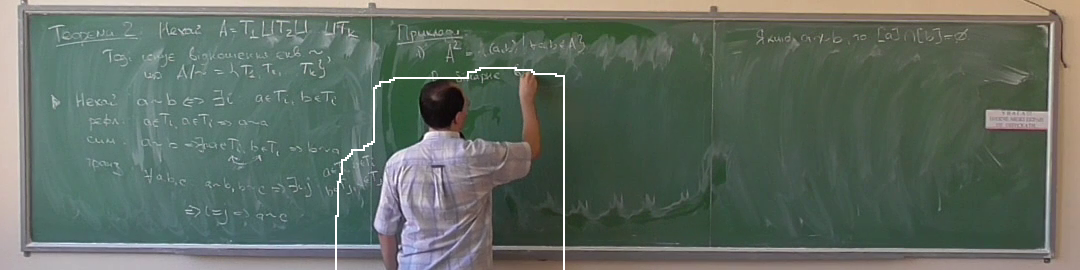 Теорема 2. Нехай A = T₁ ⊔ T₂ ⊔ ... ⊔ Tₖ
Тоді існує відношення екв ~
що A/~ = {T₁, T₂, ... Tₖ}
Нехай a~b ⇔ ∃i: a∈Tᵢ, b∈Tᵢ
рефл: a∈Tᵢ, a∈Tᵢ ⇒ a~a
сим: a~b ⇒ ∃i a∈Tᵢ, b∈Tᵢ ⇒ b~a
транз: ∀a,b,c: a~b, b~c ⇒ ∃i,j
⇒ i=j ⇒ a~c
Приклади
1) A² = {(a,b) | a,b∈A}
Якщо a≁b, то [a]∩[b]=∅